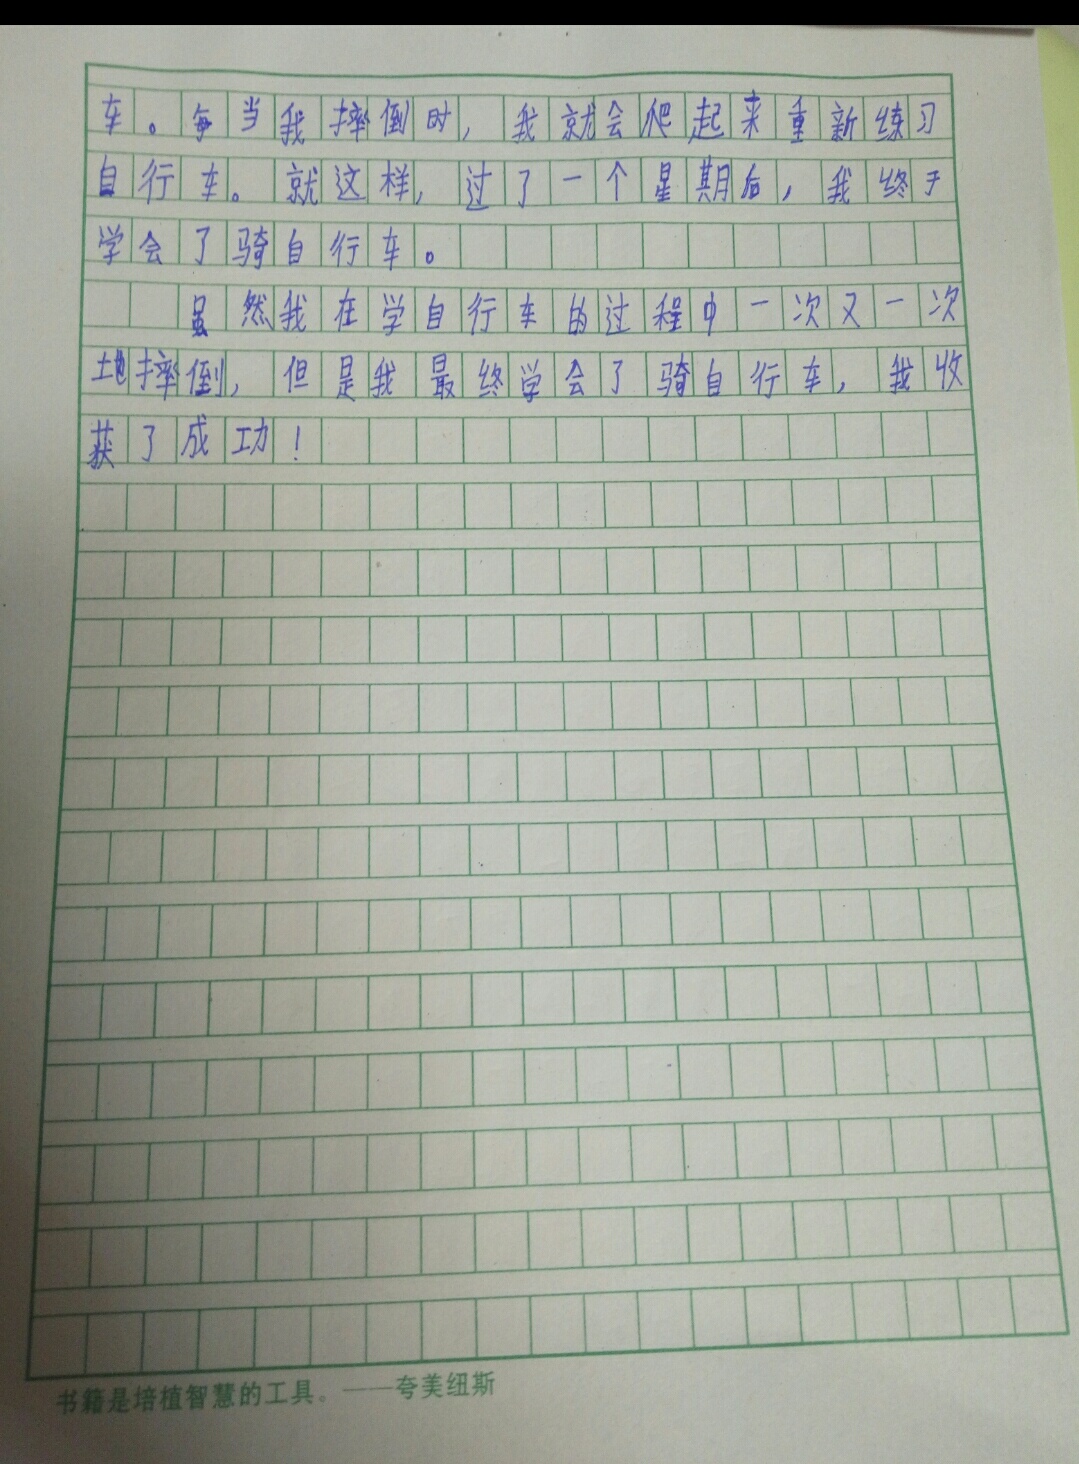 车。每当我摔倒时，我就会爬起来重新练习
自行车。就这样，过了一个星期后，我终于
学会了骑自行车。
虽然我在学自行车的过程中一次又一次
地摔倒，但是我最终学会了骑自行车，我收
获了成功！
书籍是培植智慧的工具。——夸美纽斯